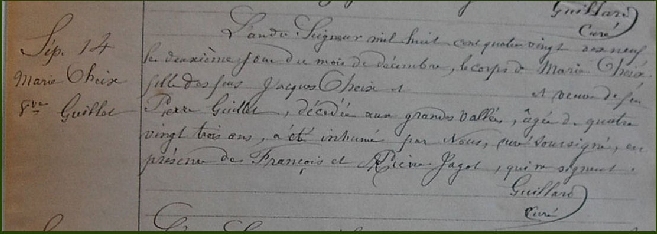 Guillard
Curé
Sép. 14
Marie Cheix
Vve Guillot
L'an du Seigneur mil huit cent quatre vingt dix neuf
le deuxième jour du mois de décembre, le corps de Marie Cheix
fille des feus Jacques Cheix et et veuve de feu
Pierre Guillot, décédée aux grands vallées, âgée de quatre
vingt trois ans, a été inhumé par Nous, curé soussigné, en
présence de François et Pierre Jagot, qui ne signent.
Guillard
Curé